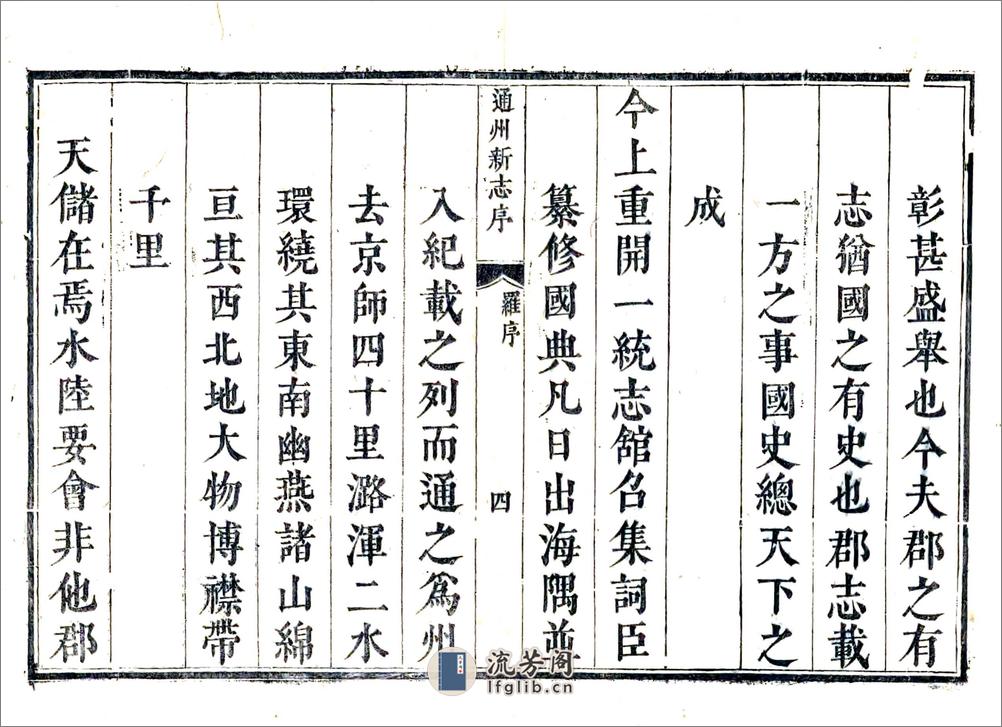 彰甚盛舉也今夫郡之有
志猶國之有史也郡志載
一方之事國史總天下之
成
今上重開一統志舘名集詞臣
纂修國典凡日出海隅並
通州新志序
羅序
四
入紀載之列而通之爲州
去京師四十里潞渾二水
環繞其東南幽燕諸山綿
亘其西北地大物博襟帶
千里
天儲在焉水陸要會非他郡
流芳阁
lfglib.cn